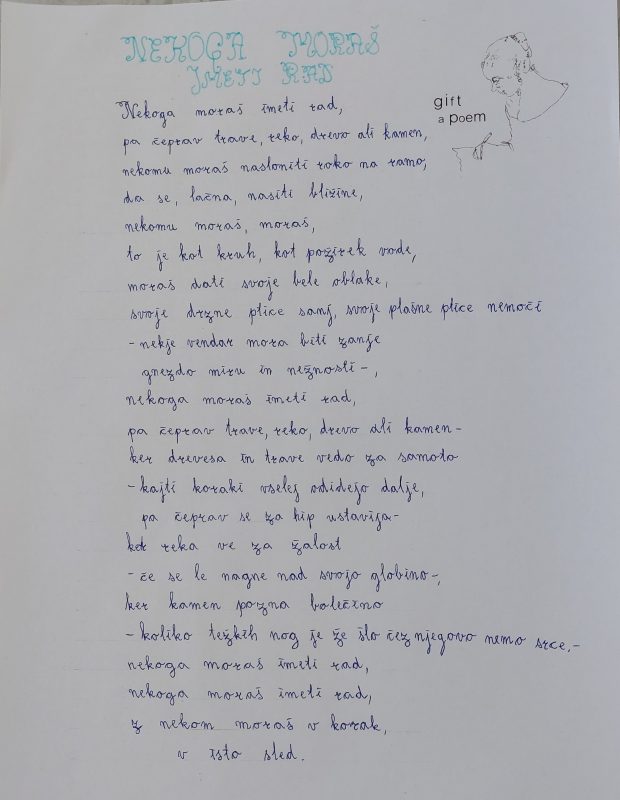 NEKOGA MORAŠ
IMETI RAD
gift
a poem
Nekoga moraš imeti rad,
pa čeprav trave, reko, drevo ali kamen,
nekomu moraš nasloniti roko na ramo,
da se, lačna, nasiti bližine,
nekomu moraš, moraš,
to je kot kruh, kot požirek vode,
moraš dati svoje bele oblake,
svoje drzne ptice sanj, svoje plašne ptice nemoči
- nekje vendar mora biti zanje
gnezdo miru in nežnosti -,
nekoga moraš imeti rad,
pa čeprav trave, reko, drevo ali kamen -
ker drevesa in trave vedo za samoto
- kajti koraki vselej odidejo dalje,
pa čeprav se za hip ustavijo -
ker reka ve za žalost
- če se le nagne nad svojo globino -,
ker kamen pozna bolečino
- koliko težkih nog je že šlo čez njegovo nemo srce, -
nekoga moraš imeti rad,
nekoga moraš imeti rad,
z nekom moraš v korak,
v isto sled.